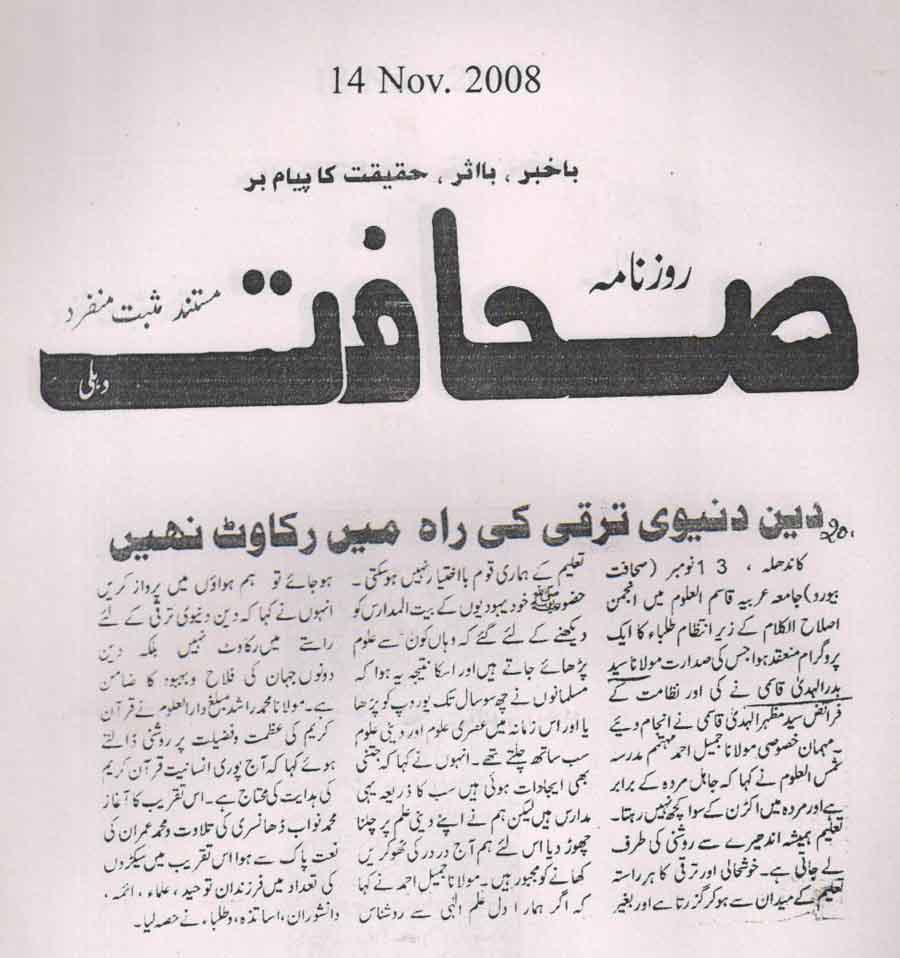 14 Nov. 2008
باخبر، بااثر، حقیقت کا پیام بر
روزنامہ
صحافت
مستند مثبت منفرد
دہلی
دین دنیوی ترقی کی راہ میں رکاوٹ نہیں
کاندھلہ، 13 نومبر (صحافت
بیورو) جامعہ عربیہ قاسم العلوم میں انجمن
اصلاح الکلام کے زیر انتظام طلباء کا ایک
پروگرام منعقد ہوا جس کی صدارت مولانا سید
بدر الہدیٰ قاسمی نے کی اور نظامت کے
فرائض سید مظہر الہدیٰ قاسمی نے انجام دیئے
۔ مہمان خصوصی مولانا جمیل احمد مہتمم مدرسہ
شمس العلوم نے کہا کہ جاہل مردہ کے برابر
ہے اور مردہ میں اکڑن کے سوا کچھ نہیں رہتا۔
تعلیم ہمیشہ اندھیرے سے روشنی کی طرف
لے جاتی ہے۔ خوشحالی اور ترقی کا ہر راستہ
تعلیم کے میدان سے ہو کر گزرتا ہے اور بغیر
تعلیم کے ہماری قوم بااختیار نہیں ہوسکتی۔
حضور صلی اللہ علیہ وسلم خود یہودیوں کے بیت المدارس کو
دیکھنے کے لئے گئے کہ وہاں کون سے علوم
پڑھائے جاتے ہیں اور اسکا نتیجہ یہ ہوا کہ
مسلمانوں نے چھ سو سال تک یوروپ کو پڑھا
یا اور اس زمانہ میں عصری علوم اور دینی علوم
سب ساتھ چلتے تھے۔ انہوں نے کہا کہ جتنی
بھی ایجادات ہوئی ہیں سب کا ذریعہ یہی
مدارس ہیں لیکن ہم نے اپنے دینی علم پر چلنا
چھوڑ دیا اس لئے ہم آج در در کی ٹھوکریں
کھانے کو مجبور ہیں۔ مولانا جمیل احمد نے کہا
کہ اگر ہمارا دل علم الٰہی سے روشناس
ہوجائے تو ہم ہواؤں میں پرواز کریں
انہوں نے کہا کہ دین دنیوی ترقی کے لئے
راستے میں رکاوٹ نہیں بلکہ دین
دونوں جہان کی فلاح و بہبود کا ضامن
ہے۔ مولانا محمد راشد مبلغ دارالعلوم نے قرآن
کریم کی عظمت و فضیلت پر روشنی ڈالتے
ہوئے کہا کہ آج پوری انسانیت قرآن کریم
کی ہدایت کی محتاج ہے۔ اس تقریب کا آغاز
محمد نواب ڈھانسری کی تلاوت و محمد عمران کی
نعت پاک سے ہوا اس تقریب میں سیکڑوں
کی تعداد میں فرزندان توحید، علماء، ائمہ،
دانشوران، اساتذہ، و طلباء نے حصہ لیا۔